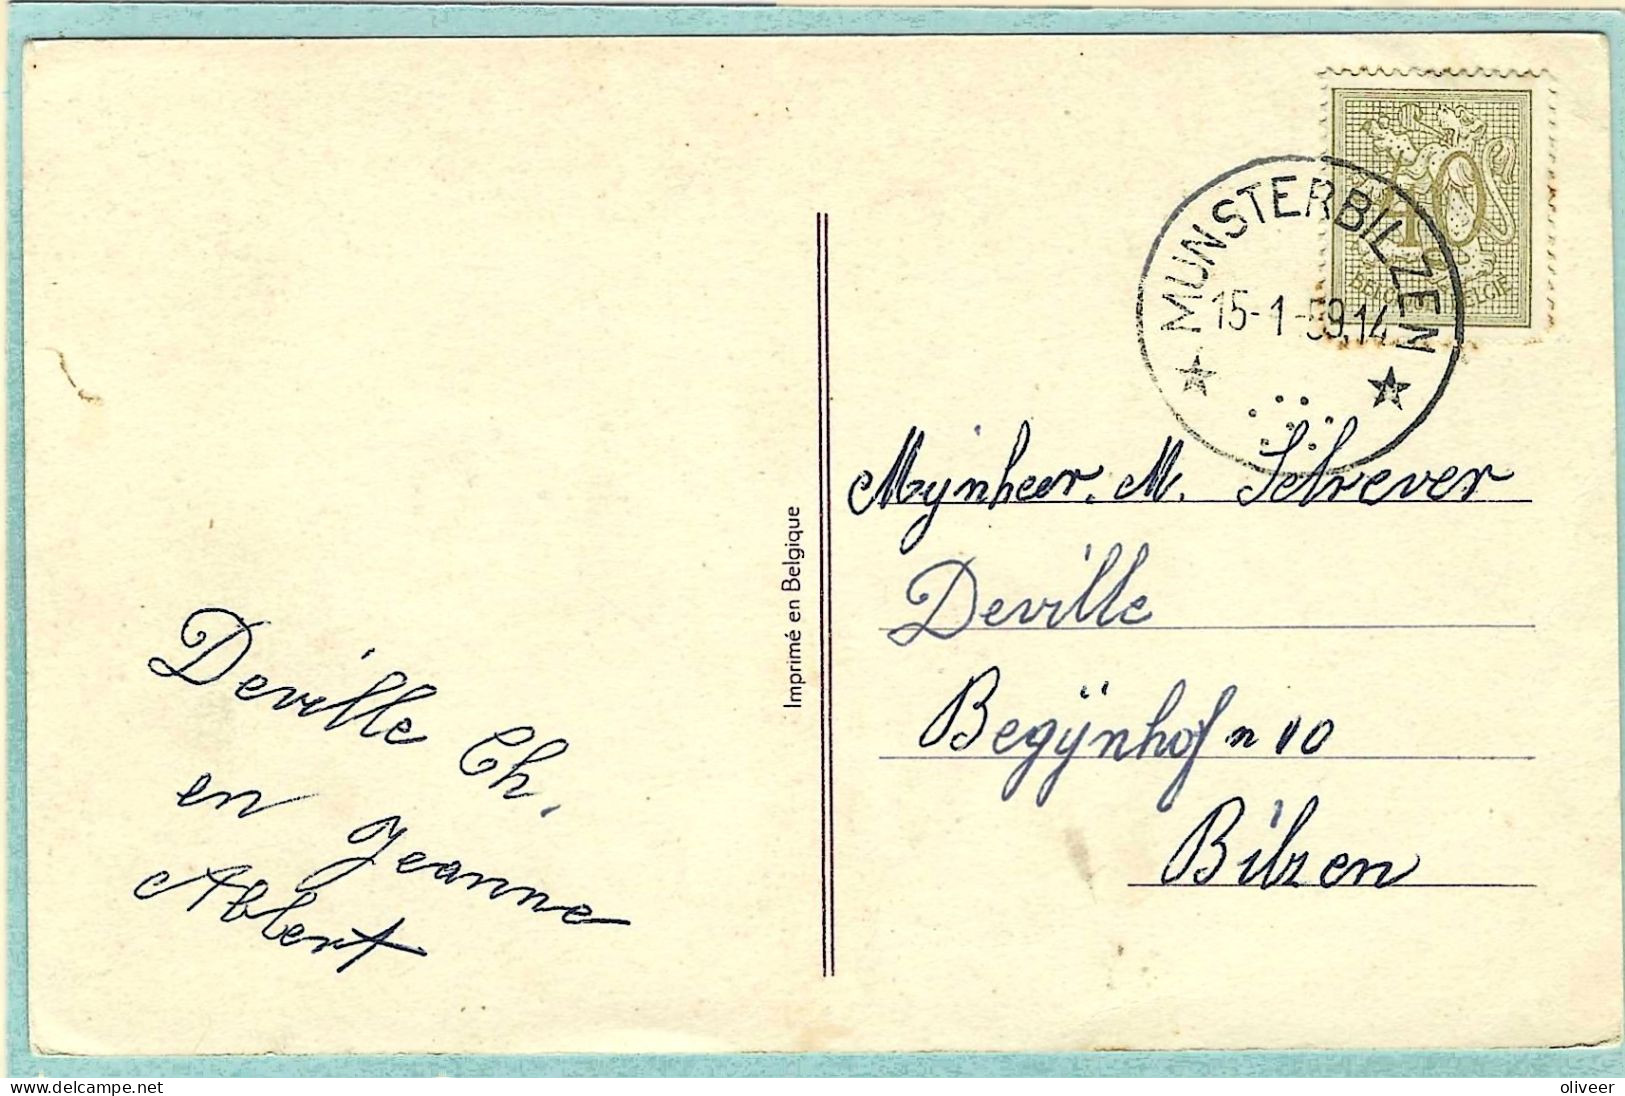 40
BELGIE
MUNSTERBILZEN
15-1-59.14
Imprimé en Belgique
Mynheer. M. Schrever
Deville
Begÿnhof n 10
Bilzen
Deville Ch.
en Jeanne
Albert
www.delcampe.net
oliveer